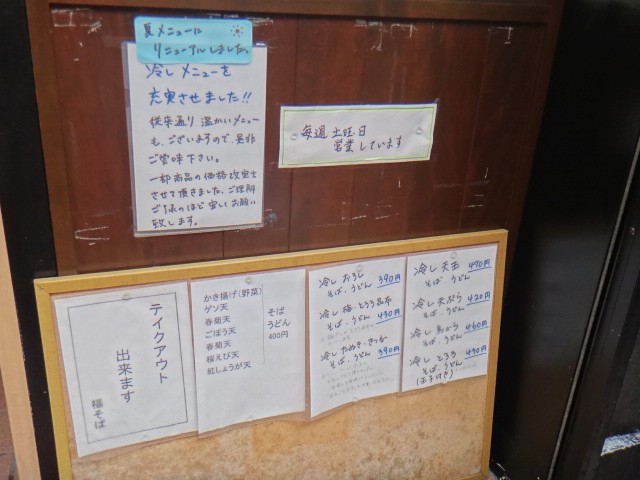 夏メニューに
リニューアルしました。
冷しメニューを
充実させました!!
従来通り 温かいメニュー
も、ございますので、是非
ご賞味下さい。
一部商品の価格改定を
させて頂きました。ご理解
ご了承のほど宜しくお願い
致します。
毎週 土曜日
営業しています
テイクアウト
出来ます
福そば
かき揚げ(野菜)
ゲソ天
春菊天
ごぼう天
春菊天
桜えび天
紅しょうが天
そば
うどん
400円
冷し おろし
そば、うどん 390円
冷し 梅 とろろ昆布
そば、うどん 430円
冷し たぬき・きつね
そば、うどん 390円
冷し 天玉 470円
そば、うどん
冷し 天ぷら 420円
そば、うどん
冷し 鳥から 460円
そば、うどん
冷し とろろ 430円
そば、うどん
(玉子付き)